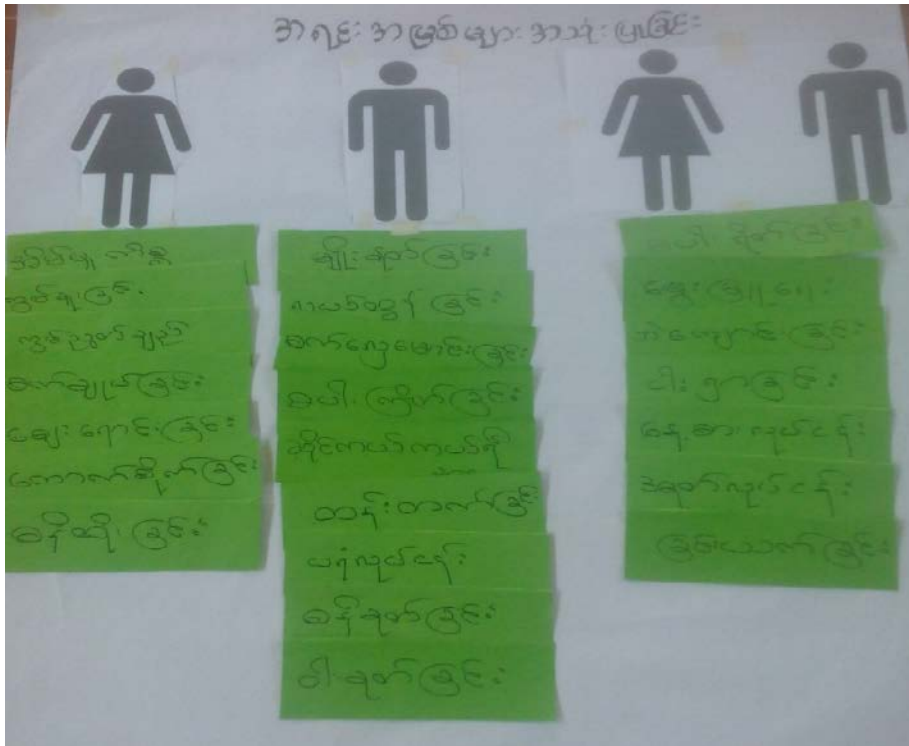 အရင်းအမြစ်များ အသုံးပြုခြင်း
အိမ်မှုကိစ္စ
စက်ချုပ်ခြင်း
ဈေးရောင်းခြင်း
ကောက်စိုက်ခြင်း
စနိုးခြင်း
မျိုးချတ်ခြင်း
လယ်ထွန်ခြင်း
စက်လှေမောင်းခြင်း
စပါးကြိတ်ခြင်း
ဆိုင်ကယ်ကယ်ရီ
ထန်းတက်ခြင်း
ပရံလုပ်ငန်း
ဝါးခုတ်ခြင်း
စပါးရိတ်ခြင်း
မွေးမြူရေး
ဘဲကျောင်းခြင်း
ငါးရှာခြင်း
နေ့စားလုပ်ငန်း
အရက်လုပ်ငန်း
ခြင်းယက်ခြင်း